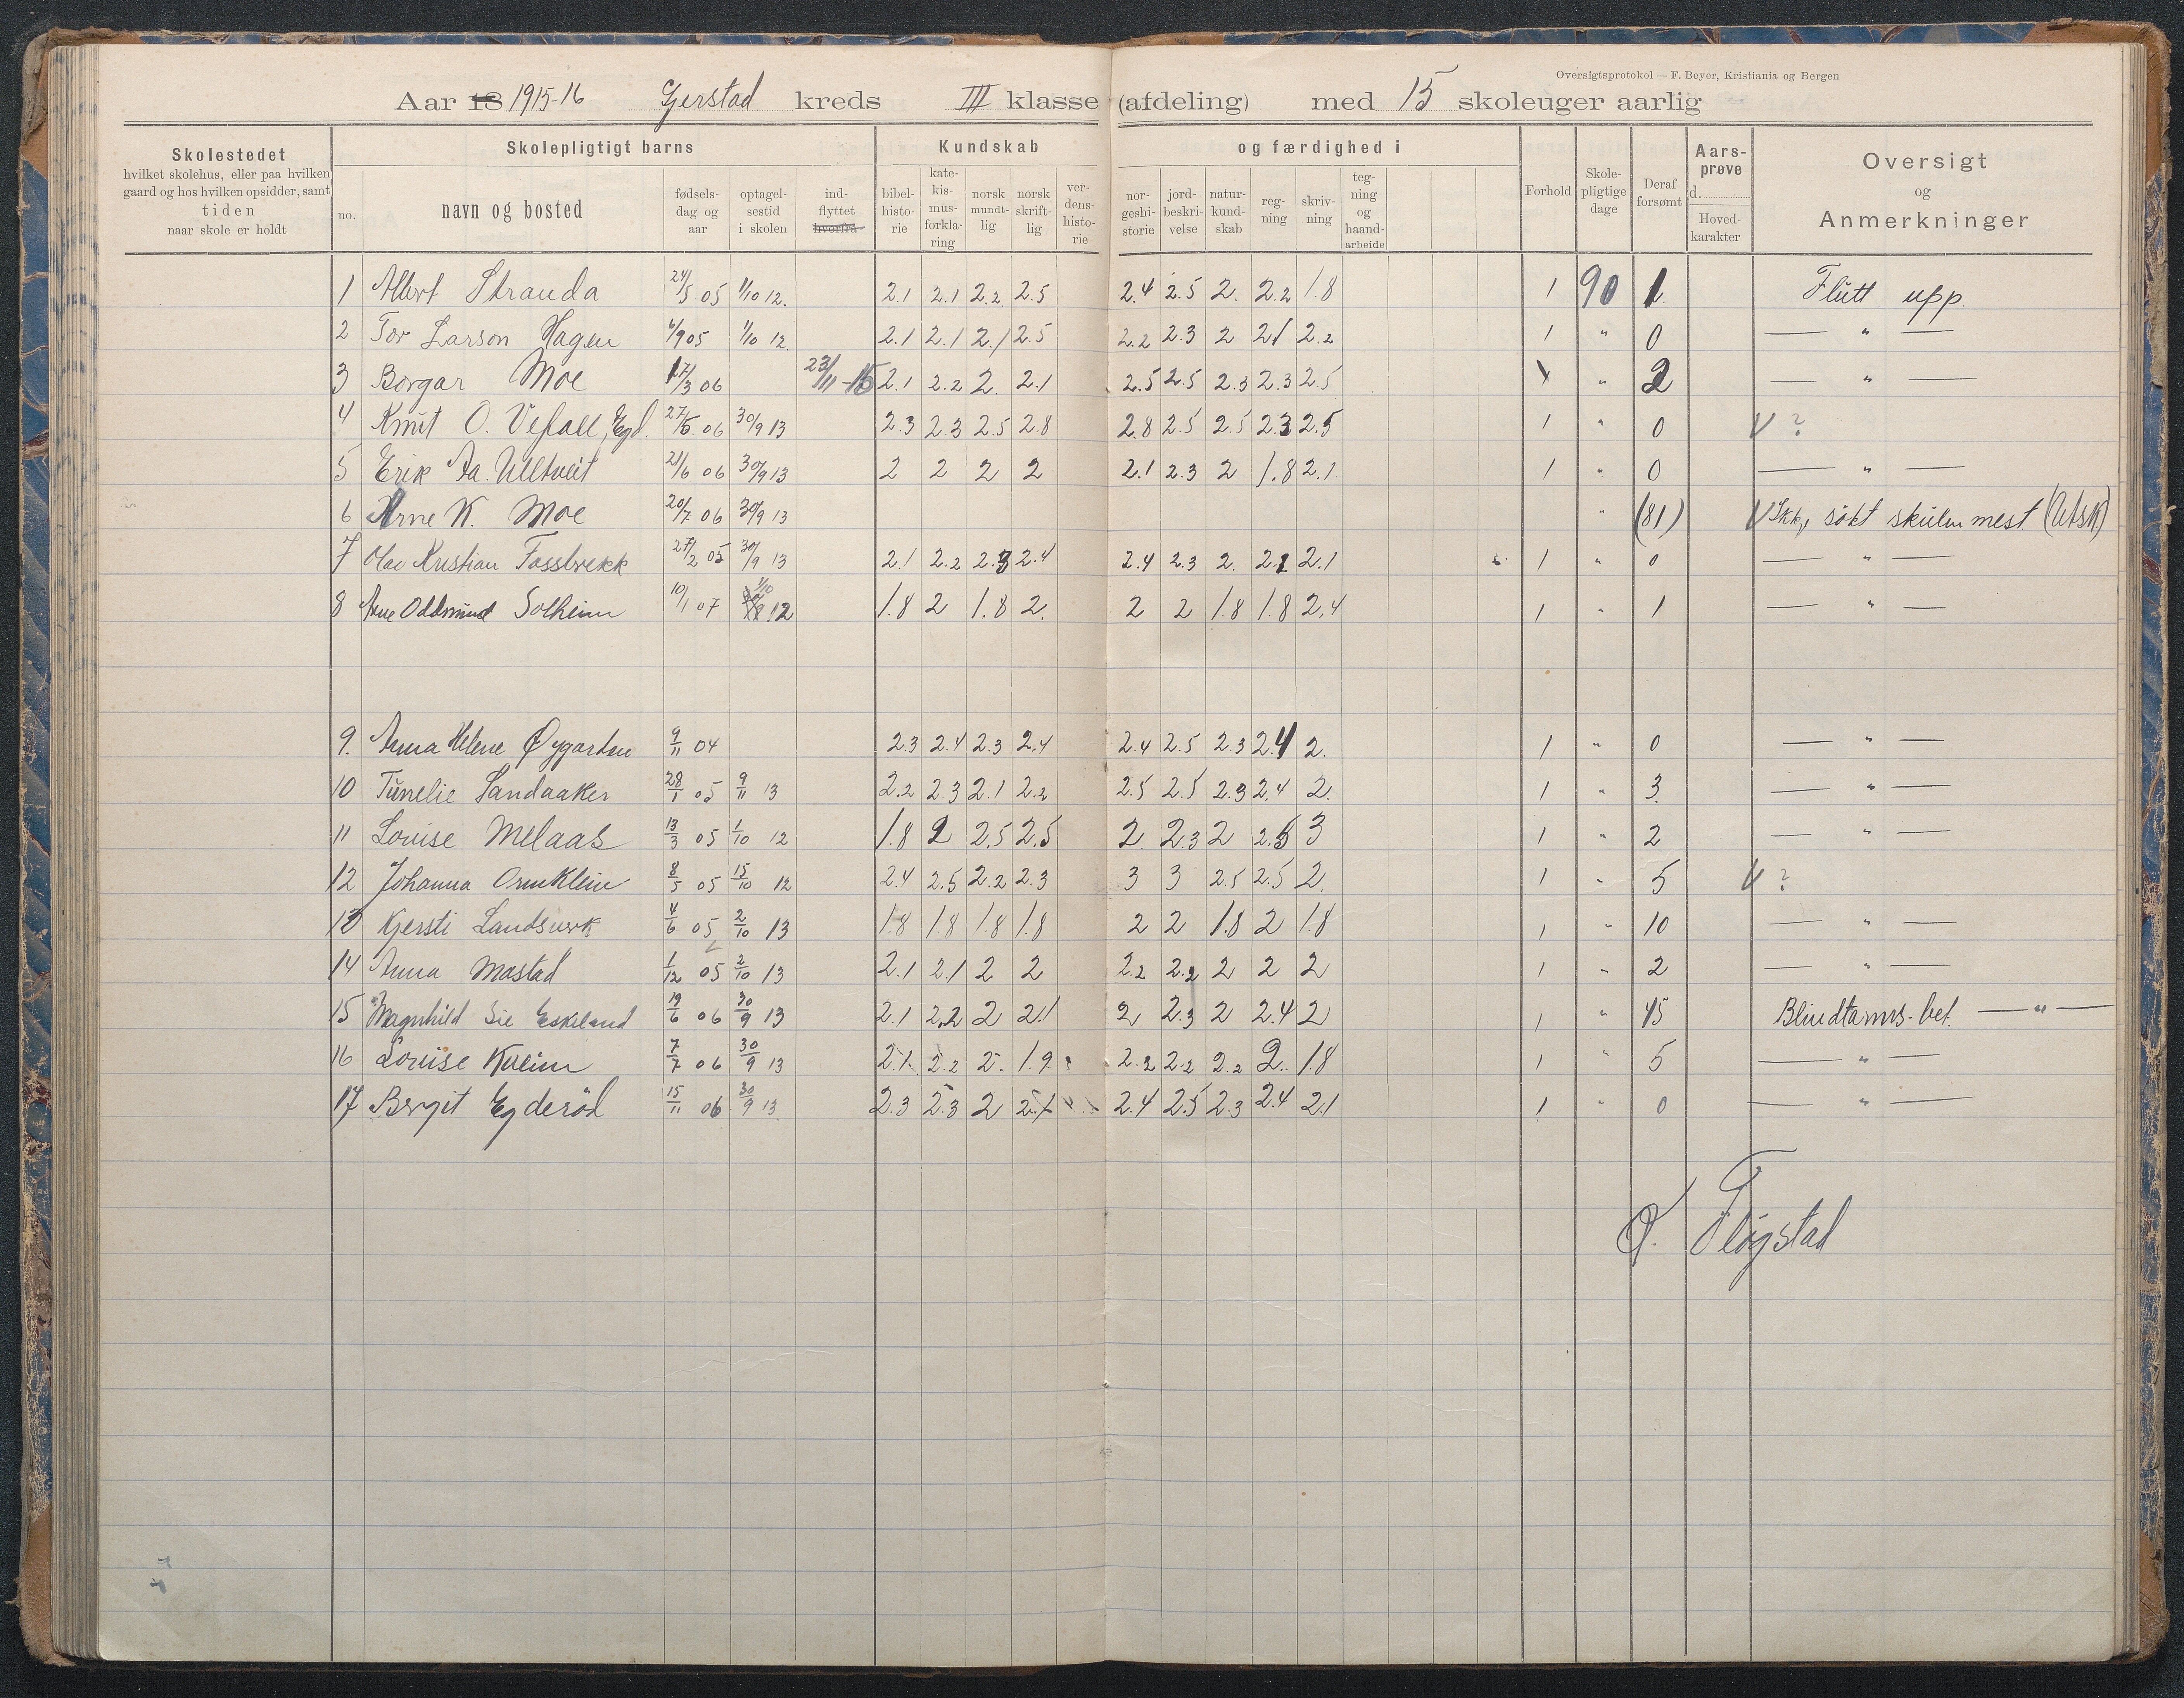 Oversigtsprotokol — F. Beyer, Kristiania og Bergen
Aar 18 1915-16 Gjerstad kreds III klasse (afdeling) med 15 skoleuger aarlig
Skolestedet
hvilket skolehus, eller paa hvilken
gaard og hos hvilken opsidder, samt
tiden
naar skole er holdt
Skolepligtigt barns
no.
navn og bosted
fødsels-
dag og
aar
optagel-
sestid
i skolen
ind-
flyttet
hvorfra
Kundskab
bibel-
histo-
rie
kate-
kis-
mus-
forkla-
ring
norsk
mundt-
lig
norsk
skrift-
lig
ver-
dens-
histo-
rie
og færdighed i
nor-
geshi-
storie
jord-
beskri-
velse
natur-
kund-
skab
reg-
ning
skriv-
ning
teg-
ning
og
haand-
arbeide
Forhold
Skole-
pligtige
dage
Deraf
forsømt
Aars-
prøve
d.
Hoved-
karakter
Oversigt
og
Anmerkninger
1 Albert Stranda 24/5 05 1/10 12. 2.1 2.1 2.2 2.5 2.4 2.5 2. 2.2 1.8 1 90 1 Flutt upp.
2 Tor Larson Hagen 6/9 05 1/10 12. 2.1 2.1 2.1 2.5 2.2 2.3 2 2.1 2.2 1 " 0 — " —
3 Borgar Moe 17/3 06 23/11-15 2.1 2.2 2. 2.1 2.5 2.5 2.3 2.3 2.5 1 " 2 — " —
4 Knut O. Vefall, Egd. 27/5 06 30/9 13 2.3 2.3 2.5 2.8 2.8 2.5 2.5 2.3 2.5 1 " 0 V ?
5 Erik Aa. Ulltveit 21/6 06 30/9 13 2 2 2 2 2.1 2.3 2 1.8 2.1 1 " 0 — " —
6 Arne K. Moe 20/7 06 30/9 13 " (81) V Ikkje søkt skulen mest
7 Olav Kristian Fossbrekk 27/2 05 30/9 13 2.1 2.2 2.3 2.4 2.4 2.3 2. 2.2 2.1 1 " 0 — " —
8 Arne Oddmund Solheim 10/1 07 1/10 12 1.8 2 1.8 2. 2 2 1.8 1.8 2.4 1 " 1 — " —
9. Anna Helene Øygarden 9/11 04 2.3 2.4 2.3 2.4 2.4 2.5 2.3 2.4 2. 1 " 0 — " —
10 Tunelie Sandaaker 28/1 05 9/11 13 2.2 2.3 2.1 2.2 2.5 2.5 2.3 2.4 2. 1 " 3. — " —
11 Louise Melaas 13/3 05 1/10 12 1.8 2 2.5 2.5 2 2.3 2 2.5 3 1 " 2 — " —
12 Johanna Ormklein 8/5 05 15/10 12 2.4 2.5 2.2 2.3 3 3 2.5 2.5 2. 1 " 5 V ?
13 Kjersti Landsverk 4/6 05 2/10 13 1.8 1.8 1.8 1.8 2 2 1.8 2 1.8 1 " 10 — " —
14 Anna Mostad 1/12 05 2/10 13 2.1 2.1 2 2 2.2 2.2 2 2 2 1 " 2 — " —
15 Magnhild Lie Eskeland 19/6 06 30/9 13 2.1 2.2 2 2.1 2 2.3 2 2.4 2 1 " 45 Blindtarms-bet. — " —
16 Louise Kveim 7/7 06 30/9 13 2.1 2.2 2. 1.9 2.2 2.2 2.2 2. 1.8 1 " 5 — " —
17 Bergit Egderød 15/11 06 30/9 13. 2.3 2.3 2 2.1 2.4 2.5 2.3 2.4 2.1 1 " 0 — " —
O. Fløgstad